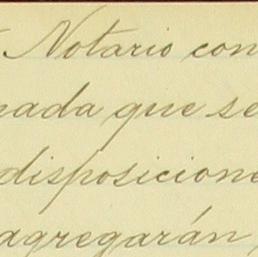 Notario con
nada que se
disposicione
agregarán